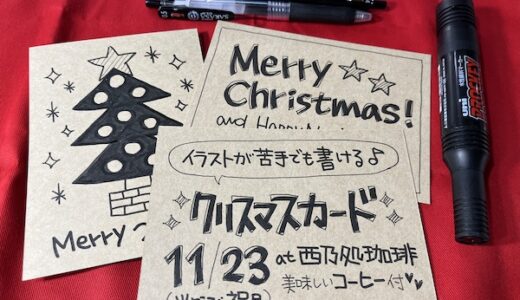 Merry
Merry
Christmas!
and
イラストが苦手でも書ける♪
クリスマスカード
11/23 at 西乃処珈琲
美味しいコーヒー付♥♥
uni